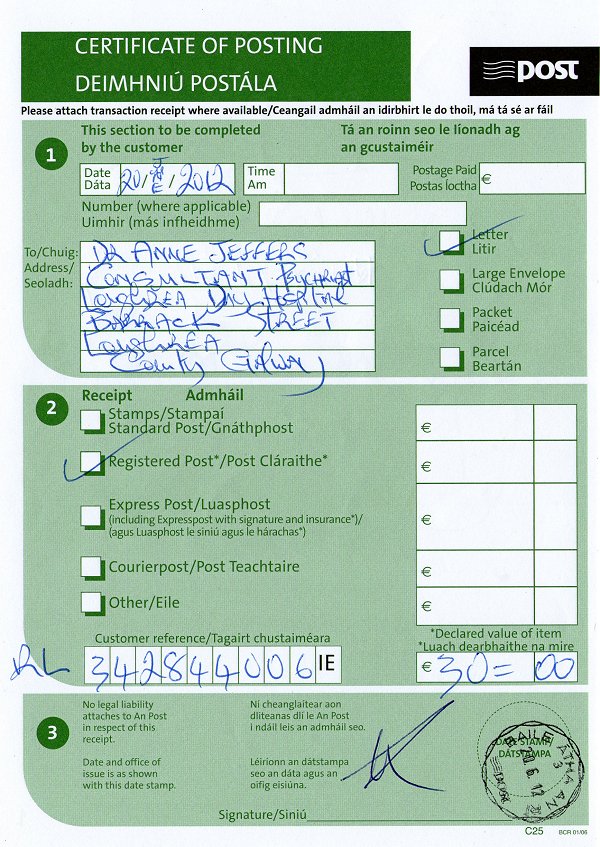 CERTIFICATE OF POSTING
DEIMHNIÚ POSTÁLA
post
Please attach transaction receipt where available/Ceangail admháil an idirbhirt le do thoil, má tá sé ar fáil
1
This section to be completed
by the customer
Tá an roinn seo le líonadh ag
an gcustaiméir
Date
Dáta
20/JUNE/2012
Time
Am
Postage Paid
Postas íoctha
€
Number (where applicable)
Uimhir (más infheidhme)
To/Chuig:
Address/
Seoladh:
DR ANNE JEFFERS
CONSULTANT PSYCHIATRIST
LOUGHREA DAY HOSPITAL
BARRACK STREET
LOUGHREA
COUNTY GALWAY
Letter
Litir
Large Envelope
Clúdach Mór
Packet
Paicéad
Parcel
Beartán
2
Receipt Admháil
Stamps/Stampaí
Standard Post/Gnáthphost
€
Registered Post*/Post Cláraithe*
€
Express Post/Luasphost
(including Expresspost with signature and insurance*)/
(agus Luasphost le siniú agus le hárachas*)
€
Courierpost/Post Teachtaire
€
Other/Eile
€
Customer reference/Tagairt chustaiméara
RL 342844006 IE
*Declared value of item
*Luach dearbhaithe na míre
€ 30=00
3
No legal liability
attaches to An Post
in respect of this
receipt.
Date and office of
issue is as shown
with this date stamp.
Ní cheanglaítear aon
dliteanas dlí le An Post
i ndáil leis an admháil seo.
Léiríonn an dátstampa
seo an dáta agus an
oifig eisiúna.
DATE STAMP/
DÁTSTAMPA
BAILE ÁTHA AN
20 6 12
Signature/Siniú
C25
BCR 01/06